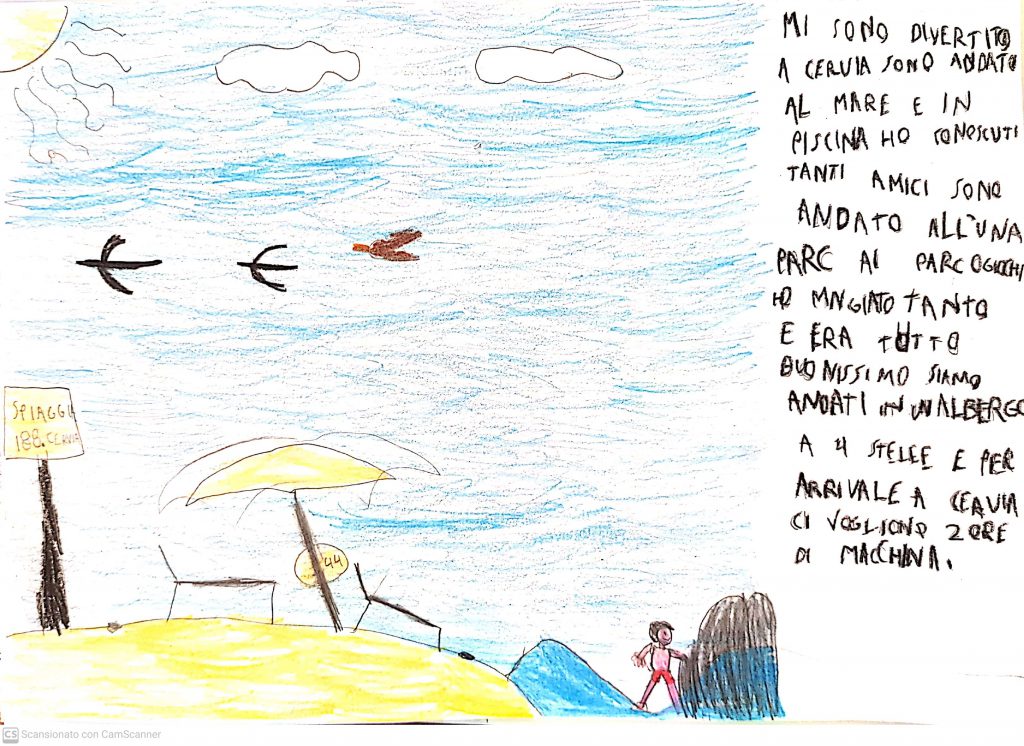 MI SONO DIVERTITO
A CERVIA SONO ANDATO
AL MARE E IN
PISCINA HO CONOSCUTI
TANTI AMICI SONO
ANDATO ALL'UNA
PARC AI PARCOGIOCHI
HO MNGIATO TANTO
E ERA TUTTO
BUONISSIMO SIAMO
ANDATI IN UN ALBERGO
A 4 STELLE E PER
ARRIVALE A CERVIA
CI VOGLIONO 2 ORE
DI MACCHINA.
SPIAGGIA
188. CERVIA
44
CS Scansionato con CamScanner